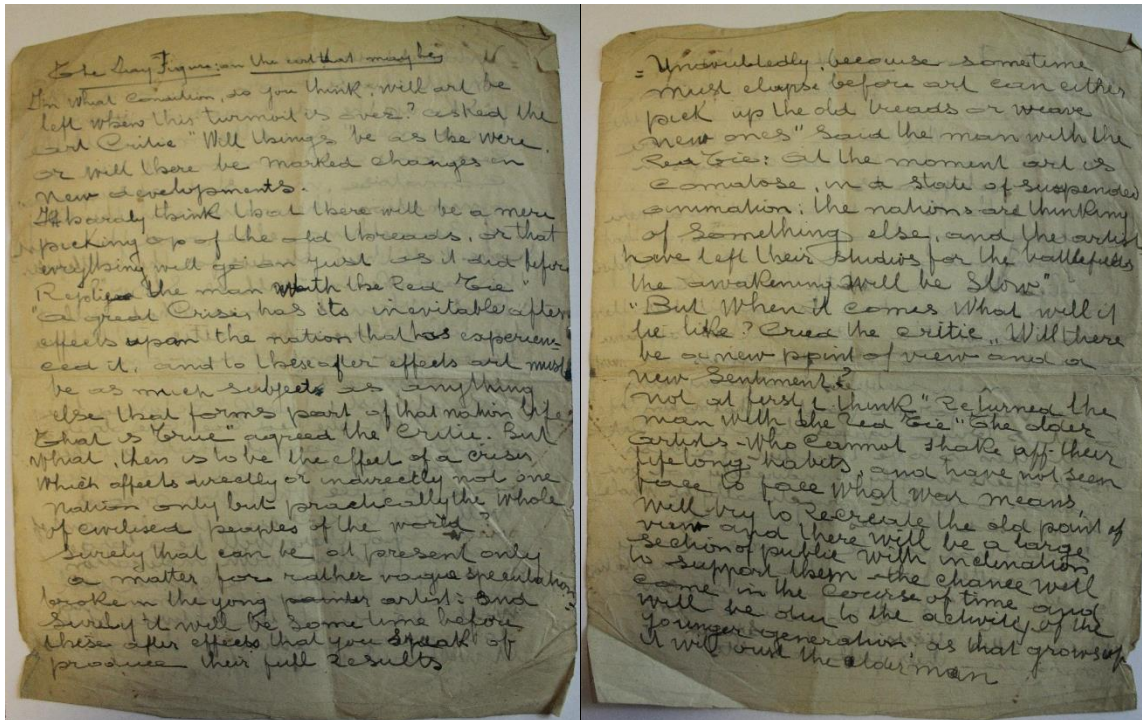 The Lay Figure: on the art that may be
In what condition, do you think, will art be
left when this turmoil is over? asked the
art Critic "Will things be as the were,
or will there be marked changes in
new developments.
I hardly think that there will be a mere
picking up of the old threads, or that
everything will go on just as it did before
Replied the man with the Red Tie"
"a great Crisis has its inevitable after
effects upon the nation that has experien=
ced it, and to these after effects art must
be as much subjects as anything
else that forms part of that nation life
that is true" agreed the Critic. But
what, then is to be the effect of a crisis
which affects directly or indirectly not one
nation only but practically the whole
of civilised peoples of the world?
Surely that can be at present only
a matter for rather vague speculation
broke in the yong painter artist: and
surely it will be some time before
these after effects that you speak of
produce their full results
= Undoubtedly, because sometime
must elapse before art can either
pick up the old treads or weave
new ones" said the man with the
Red Tie: At the moment art is
comatose, in a state of suspended
animation; the nations are thinking
of something else, and the artist
have left their studios for the battlefields
the awakening will be slow."
"But when it comes what will it
be like? Cried the critic, Will there
be a new point of view and a
new sentiment?
not at first I think" Returned the
man with the Red Tie" the older
artists - who cannot shake off their
lifelong habits, and have not seen
face to face what war means,
will try to recreate the old point of
view and there will be a large
section of public with inclination
to support them - the chance will
come in the course of time and
will be due to the activity of the
younger generation, as that grows up
it will oust the elder man